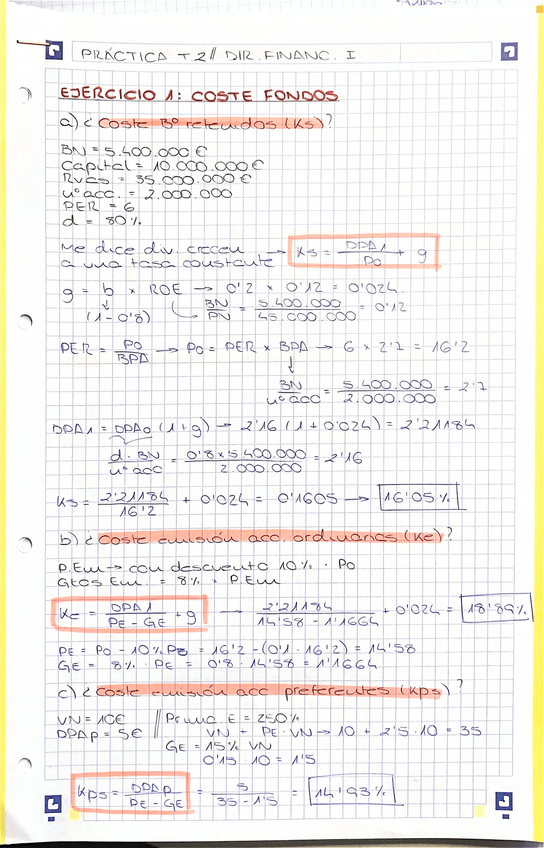 PRÁCTICA T.2// DIR. FINANC. I
EJERCICIO 1: COSTE FONDOS
a) ¿Coste Bº retenidos (Ks)?
BN = 5.400.000 €
Capital = 10.000.000 €
Rvas = 35.000.000 €
nº acc. = 2.000.000
PER = 6
d = 80%
Me dice div. crecen a una tasa constante → Ks = DPA1 / P0 + g
g = b × ROE → 0'2 × 0'12 = 0'024
(1-0'8) BN / PN = 5.400.000 / 45.000.000 = 0'12
PER = P0 / BPA → P0 = PER × BPA → 6 × 2'7 = 16'2
BN / nº acc = 5.400.000 / 2.000.000 = 2'7
DPA1 = DPA0 (1+g) → 2'16 (1+0'024) = 2'21184
d. BN / nº acc = 0'8 × 5.400.000 / 2.000.000 = 2'16
Ks = 2'21184 / 16'2 + 0'024 = 0'1605 → 16'05%
b) ¿Coste emisión acc. ordinarias (Ke)?
P.Em → con descuento 10% · P0
Gtos Em. = 8% × P.Em
Ke = DPA1 / PE - GE + g → 2'21184 / 14'58 - 1'1664 + 0'024 = 18'89%
PE = P0 - 10% P0 = 16'2 - (0'1 · 16'2) = 14'58
GE = 8% · PE = 0'8 · 14'58 = 1'1664
c) ¿Coste emisión acc preferentes (Kps)?
VN = 10€ // Prima E = 250%
DPAp = 5€ VN + PE · VN → 10 + 2'5 · 10 = 35
GE = 15% VN
0'15 · 10 = 1'5
Kps = DPAp / PE - GE = 5 / 35 - 1'5 = 14'93%